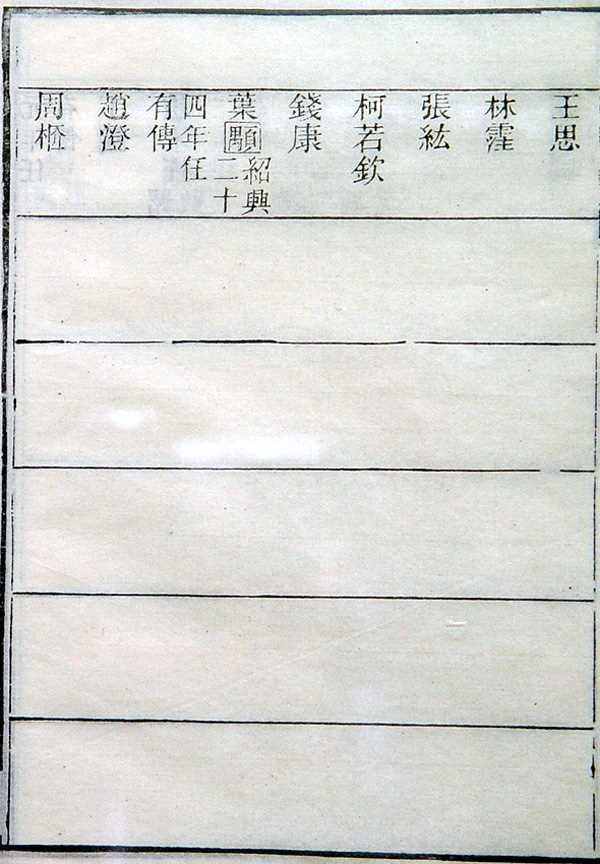 王思
林
張紘
柯若欽
錢康
葉顒紹興
二十
四年任
有傳
趙澄
周